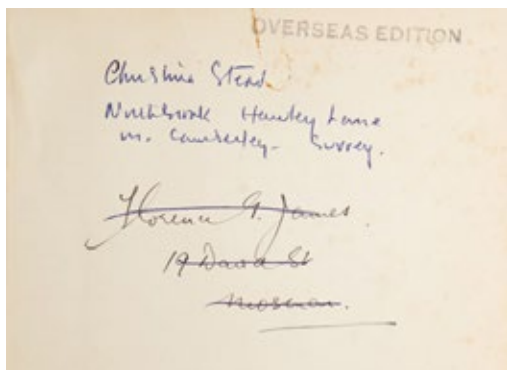 OVERSEAS EDITION
Christina Stead
Northbrook Hawley Lane
nr. Camberley. Surrey.
Florence G. James.
19 David St
Mosman.